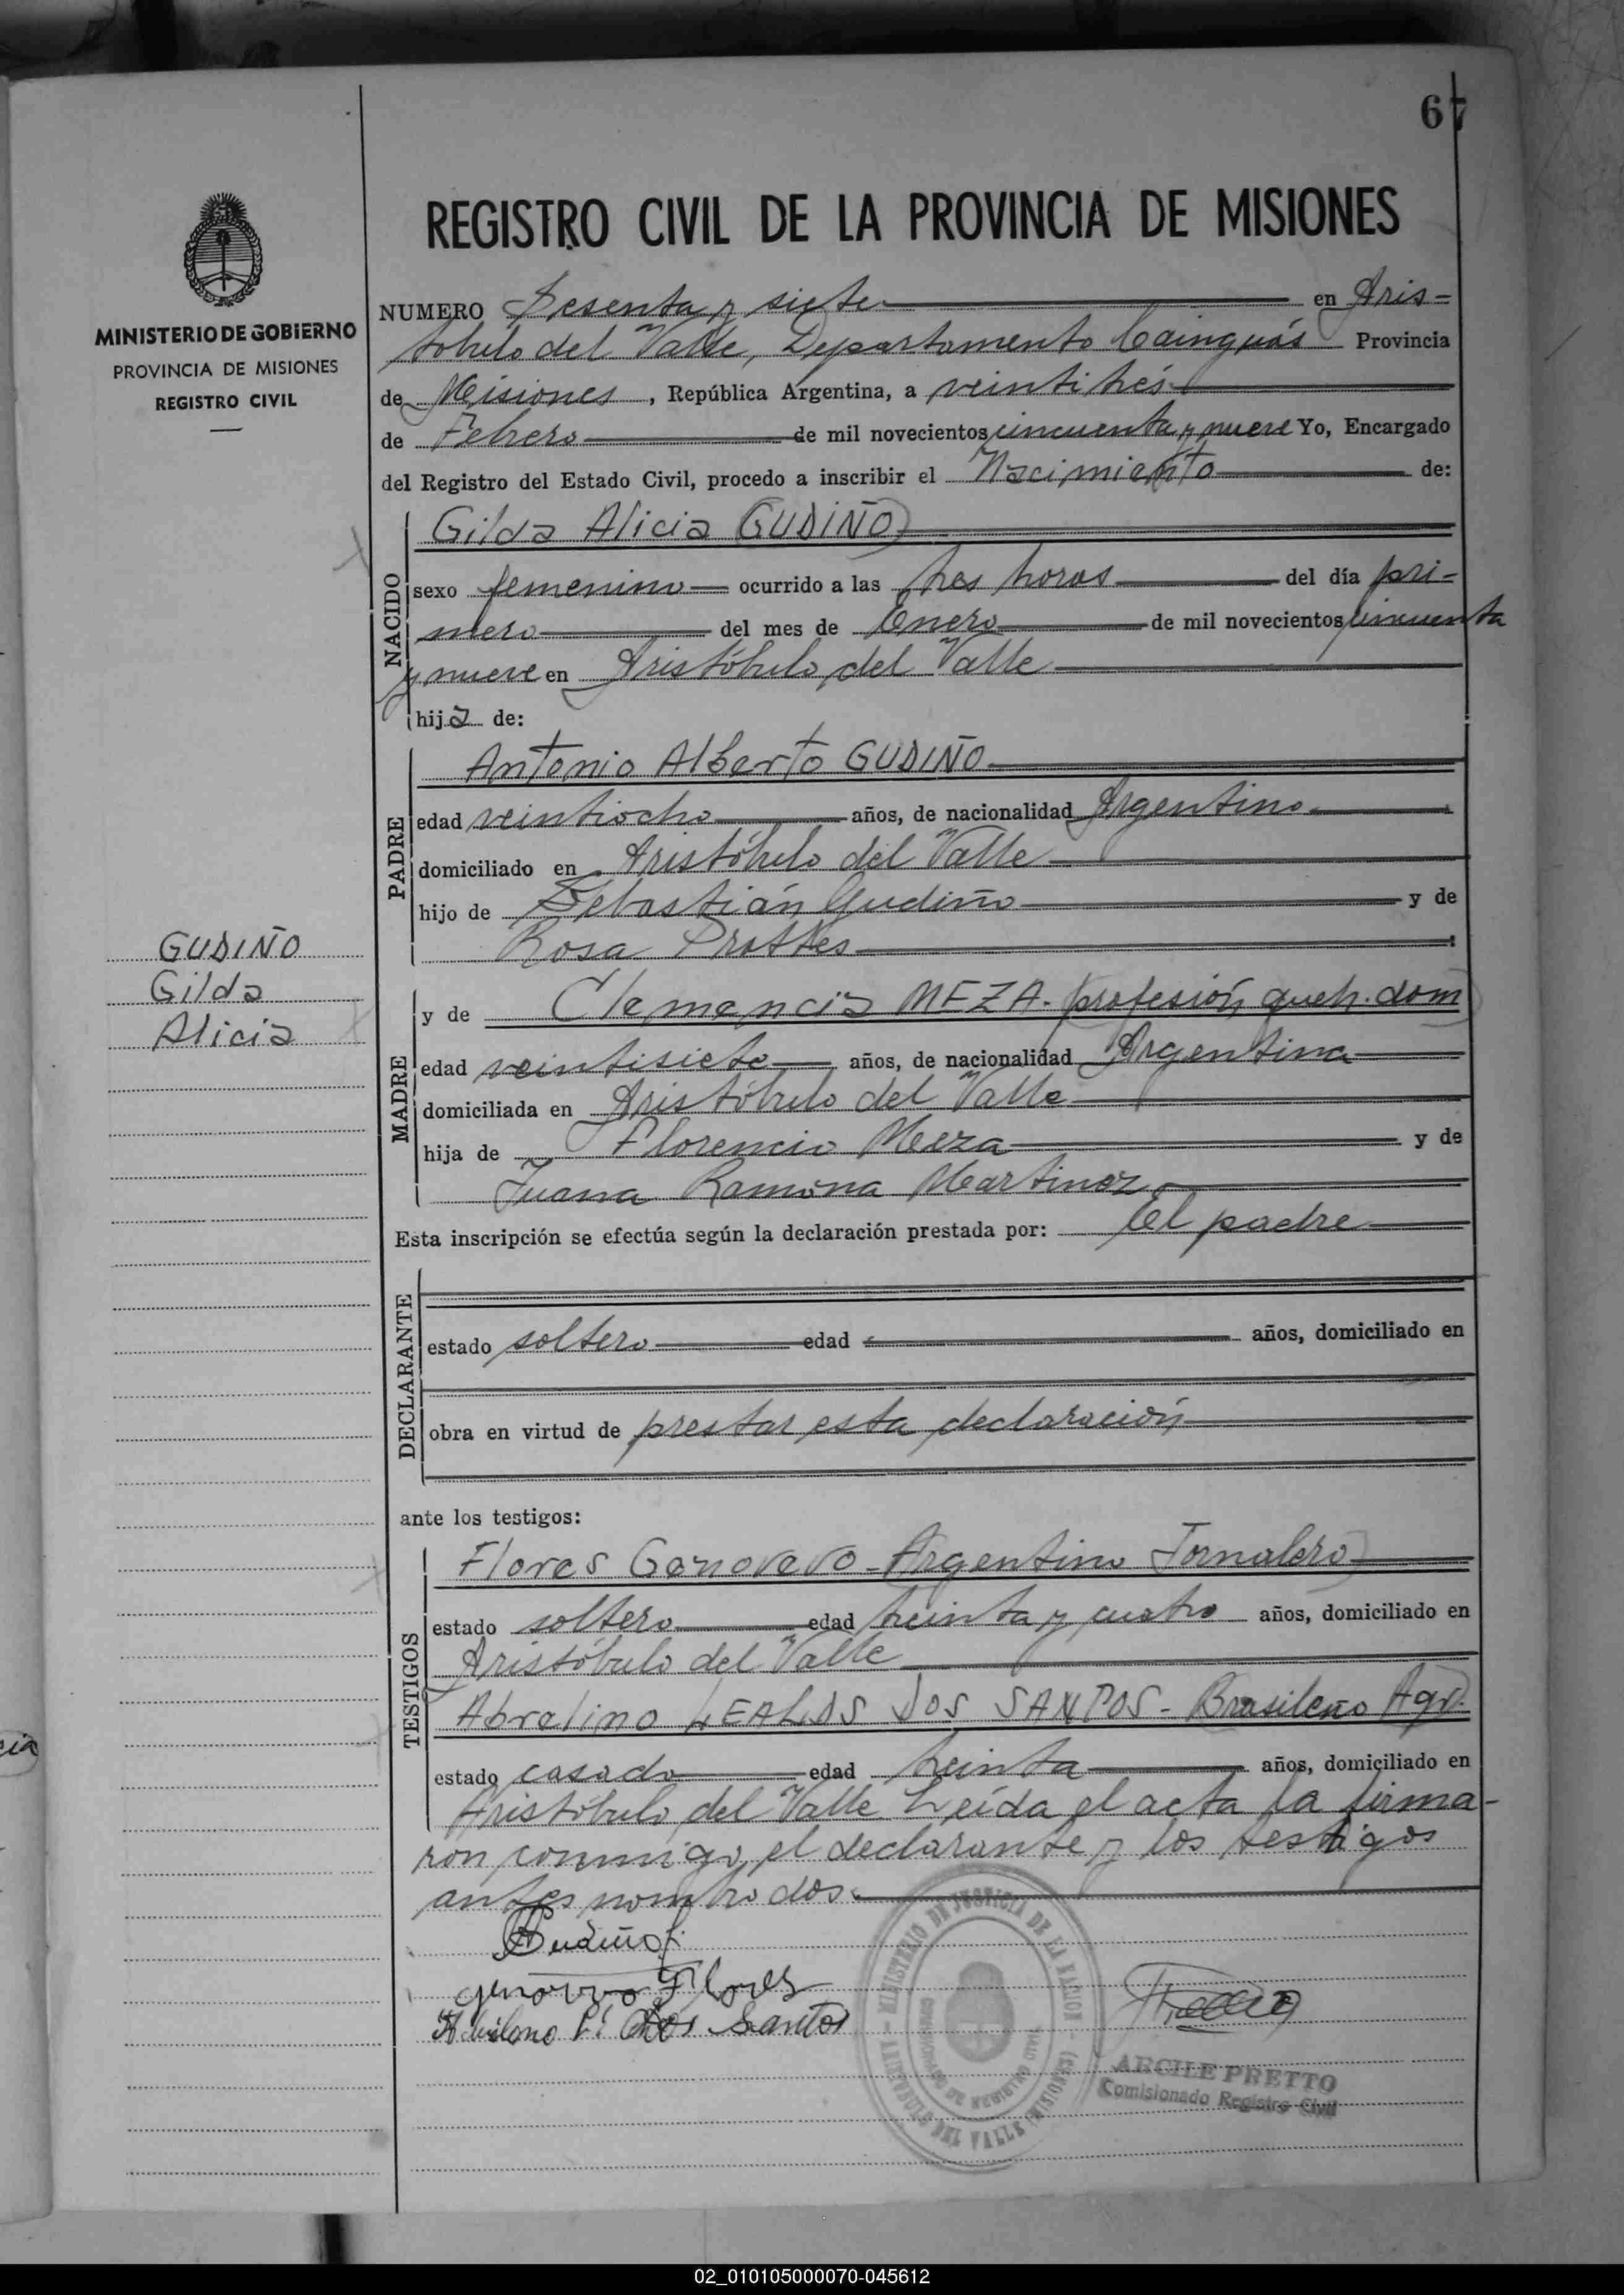 67
REGISTRO CIVIL DE LA PROVINCIA DE MISIONES
MINISTERIO DE GOBIERNO
PROVINCIA DE MISIONES
REGISTRO CIVIL
NUMERO Sesenta y siete en Aris=
tóbulo del Valle, Departamento Cainguás Provincia
de Misiones, República Argentina, a veintitrés
de Febrero de mil novecientos cincuenta y nueve Yo, Encargado
del Registro del Estado Civil, procedo a inscribir el Nacimiento de:
NACIDO
Gilda Alicia (GUDIÑO)
sexo femenino ocurrido a las tres horas del día pri=
mero del mes de Enero de mil novecientos cincuenta
y nueve en Aristóbulo del Valle
hija de:
PADRE
Antonio Alberto GUDIÑO
edad veintiocho años, de nacionalidad Argentino
domiciliado en Aristóbulo del Valle
hijo de Sebastián Gudiño y de
Rosa
GUDIÑO
Gilda
Alicia
MADRE
y de Clemencia MEZA. (profesión, queh. dom)
edad veintisiete años, de nacionalidad Argentina
domiciliada en Aristóbulo del Valle
hija de Florencio Meza y de
Juana Ramona Martinez
Esta inscripción se efectúa según la declaración prestada por: El padre
DECLARANTE
estado soltero edad años, domiciliado en
obra en virtud de prestar esta declaración
ante los testigos:
TESTIGOS
Flores Genovevo - Argentino Jornalero)
estado soltero edad treinta y cuatro años, domiciliado en
Aristóbulo del Valle
DOS SANTOS - Brasileño Agr.
estado casado edad treinta años, domiciliado en
Aristóbulo del Valle Leída el acta la firma-
ron conmigo, el declarante y los testigos
antes nombrados.
Flores
Dos Santos
MINISTERIO DE JUSTICIA DE LA NACION
ARISTOBULO DEL VALLE (MISIONES)
ARCILE PRETTO
Comisionado Registro Civil
02_010105000070-045612